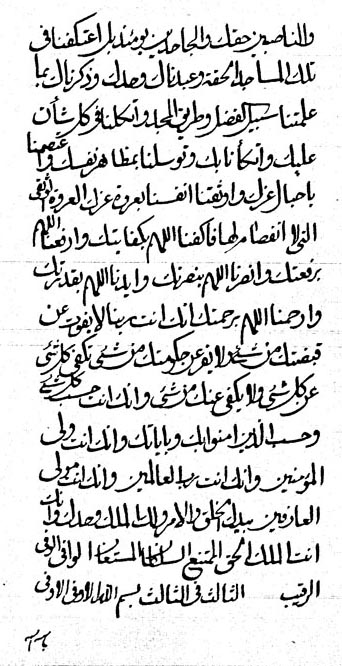 والناصبين حقك والجاحدين يومئذ بل اعتكفنا فى
تلك المساجد الحقة وعبدناك وحدك وذكرناك بما
علمتنا سبيل الفضل وطريق المجد واتكلنا فى كل شأن
عليك واتكأنا بك وتوسلنا بمظاهر نفسك واعتصمنا
باحبال عزك واوثقنا انفسنا بعروة عزك العروة الوثقى
التى لا انفصام لها فاكفنا اللهم بكفايتك وارفعنا اللهم
برفعتك وانصرنا اللهم بنصرتك وايدنا اللهم بقدرتك
وارحمنا اللهم برحمتك انك انت ربنا لا يفوت عن
قبضتك من شئ ولا يفر عن حكومتك من شئ تكفى كل شئ
عن كل شئ ولا يكفى عنك من شئ وانك انت حسب كل شئ
وحسب الذين امنوا بك وباياتك وانك انت ولى
المؤمنين وانك انت رب العالمين وانك انت مولى
العارفين بيدك الخلق والامر ولك الملك وحدك وانك
انت الملك الحى الممتنع السلطان المستعان الوافى الوفى
الرقيب الثالث فى الثالث بسم الله الاوفى الاوفى